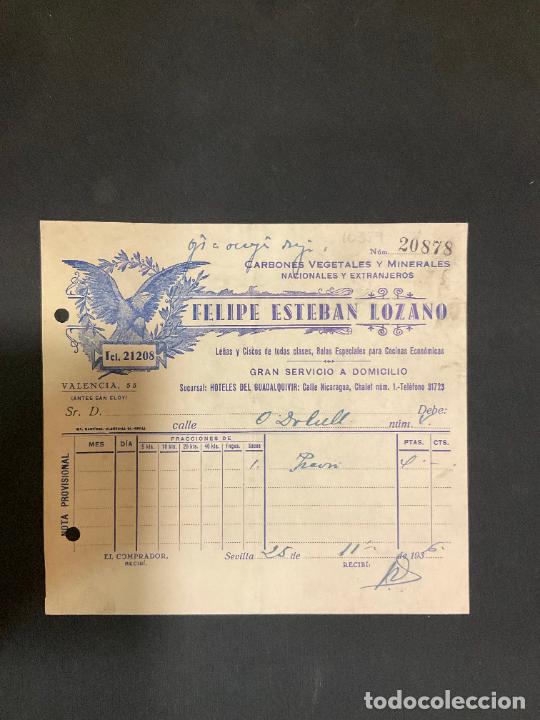 Núm. 20878
CARBONES VEGETALES Y MINERALES
NACIONALES Y EXTRANJEROS
FELIPE ESTEBAN LOZANO
Tel. 21208
Leñas y Ciscos de todas clases, Bolas Especiales para Cocinas Económicas
GRAN SERVICIO A DOMICILIO
VALENCIA, 55
(ANTES SAN ELOY)
Sucursal: HOTELES DEL GUADALQUIVIR: Calle Nicaragua, Chalet núm. 1.-Teléfono 31723
Sr. D. Debe:
calle núm.
NOTA PROVISIONAL
MES DÍA FRACCIONES DE PTAS. CTS.
5 kts. 10 kts. 20 kts. 40 kts. Fngas. Sacos
1
EL COMPRADOR, Sevilla 25 de 11 de 1936
RECIBÍ. RECIBÍ:
todocoleccion.net